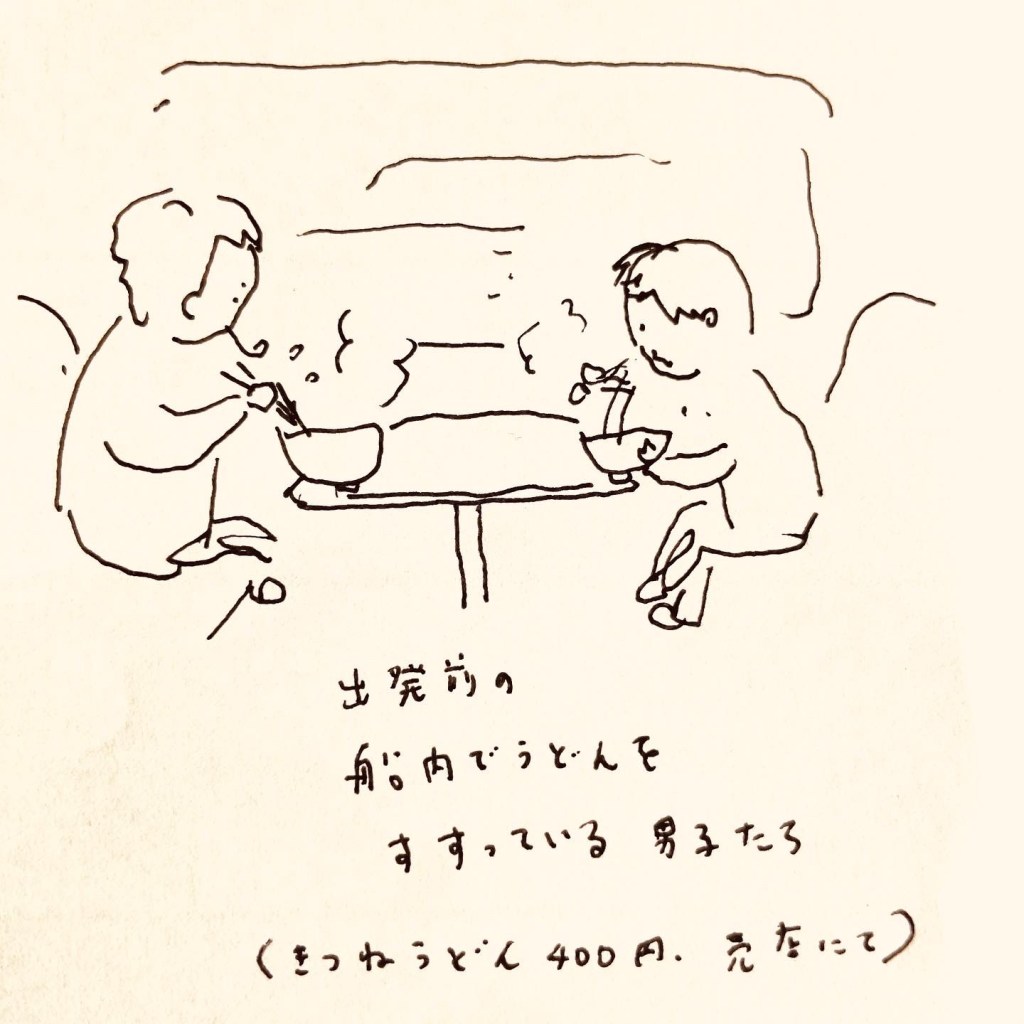 出発前の
船内でうどんを
すすっている 男子たち
(きつねうどん 400円. 売店にて)